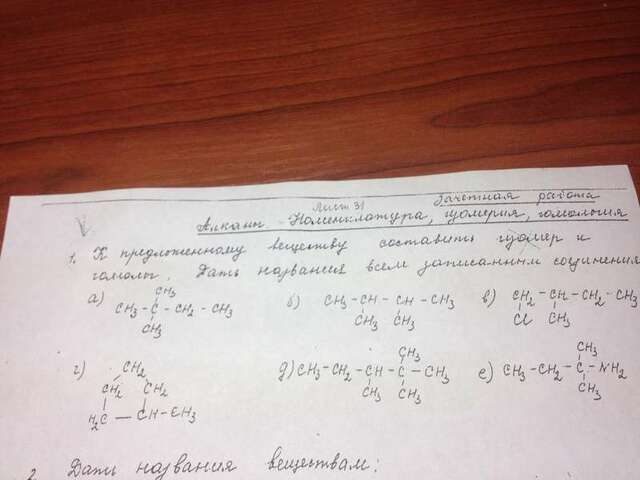 Лист 31
Зачетная работа
Алканы. Номенклатура, изомерия, гомология
1. К предложенному веществу составить изомер и
гомолог. Дать названия всем записанным соединения
а) CH3 - C - CH2 - CH3
CH3
CH3
б) CH3 - CH - CH - CH3
CH3 CH3
в) CH2 - CH - CH2 - CH3
Cl CH3
г) CH2
CH2 CH2
H2C - CH - CH3
д) CH3 - CH2 - CH - C - CH3
CH3
CH3 CH3
е) CH3 - CH2 - C - NH2
CH3
CH3
2. Дать названия веществам: